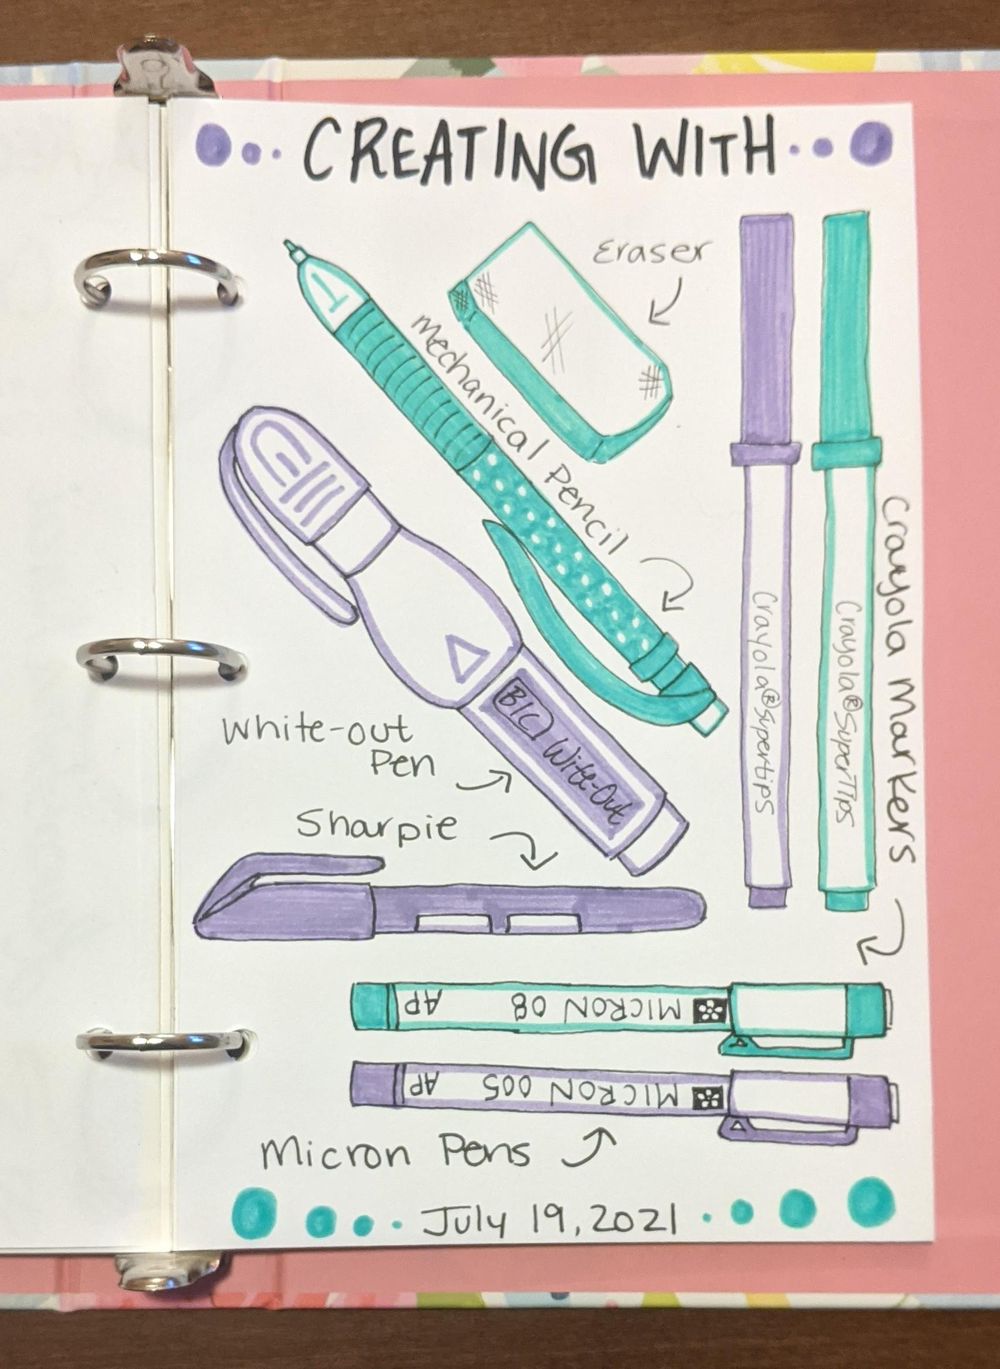 CREATING WITH
Eraser
Mechanical Pencil
Crayola Markers
Crayola®Supertips
Crayola®SuperTIps
White-out
Pen
BIC Wite-Out
Sharpie
MICRON 08 AP
MICRON 005 AP
Micron Pens
July 19, 2021